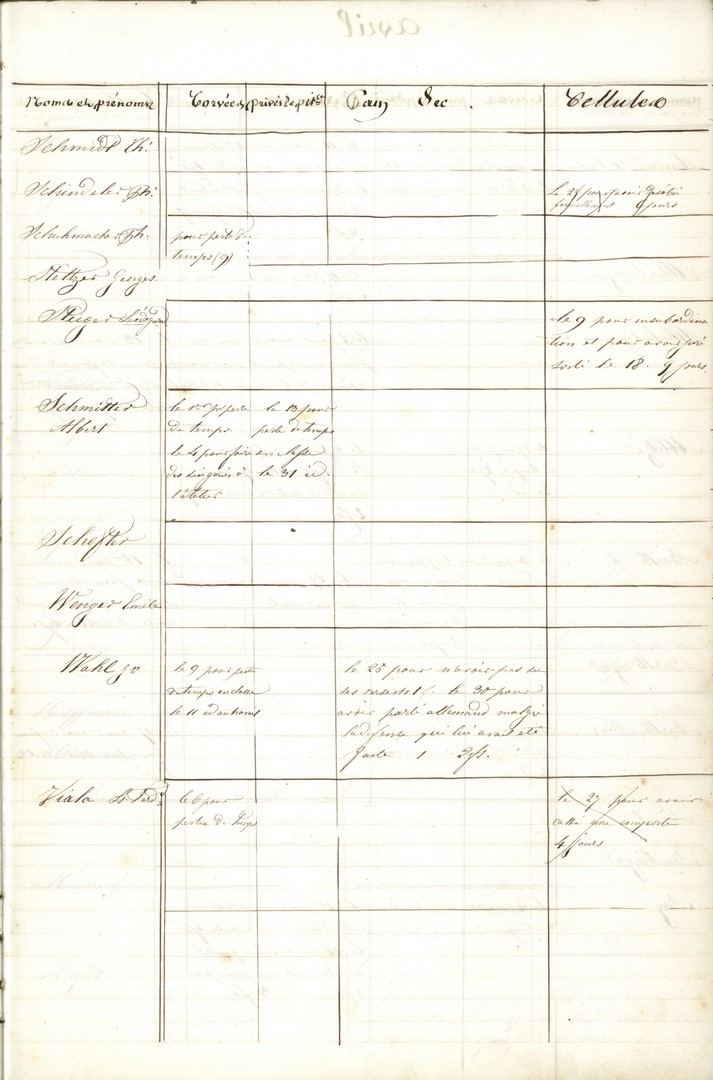 Noms et prénoms Corvées privés de pitce Pain Sec . Cellules
Schmidt Ch:
Schindeler Ph:
Le 27 pour avoir désobéi
formellement 6 jours
Schuhmacher Ph.
pour perte de
temps (9)
Steltzer Georges.
Steiger Léodegard
le 9 pour insubordina
tion et pour avoir
sorti le 18. 9 jours.
Schmitter
Albert
le 1er pr perte
de temps
le 4 pour faire
des singeries à
l'atelier
le 13 pour
perte de temps
en classe
le 31 id.
Schefter
Wenger Emile
Wahl
le 9 pour perte
de temps en classe
le 11 id au travail
le 25 pour n'avoir pas su
ses versets 1 j. le 30 pour
avoir parlé allemand malgré
la défense qui lui avait été
faite 1 2 js.
Viala
le 6 pour
perte de temps
le 27 pour avoir
cassé une
4 jours